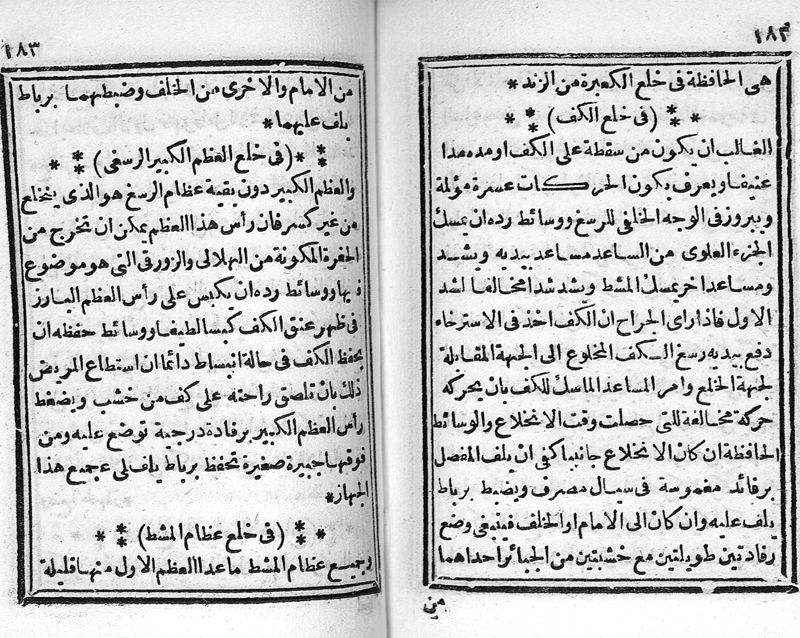 ١٨٢
هى الحافظة فى خلع الكعبرة من الزند *
* * * (فى خلع الكف) * * *
الغالب ان يكون من سقطة على الكف او مده مدا
عنيفا ويعرف بكون الحركات عسرة مؤلمة
وببروز فى الوجه الخلفى للرسغ ووسائط رده ان يمسك
الجزء العلوى من الساعد مساعد بيديه ويشد
ومساعدا خر يمسك المشط ويشد شدا مخالفا لشد
الاول فاذا راى الجراح ان الكف اخذ فى الاسترخاء
دفع بيديه رسغ الكف المخلوع الى الجهة المقابلة
لجهة الخلع وامر المساعد الماسك للكف بان يحركه
حركة مخالفة للتى حصلت وقت الانخلاع والوسائط
الحافظة ان كان الانخلاع جانبيا كفى ان يلف المفصل
برفائد مغموسة فى سيال مصرف ويضبط برباط
يلف عليه وان كان الى الامام او الخلف فينبغى وضع
رفادتين طويلتين مع خشبتين من الجبائر احداهما
من
١٨٣
من الامام والاخرى من الخلف وضبطهما برباط
يلف عليهما *
* * * (فى خلع العظم الكبير الرسغى) * * *
والعظم الكبير دون بقية عظام الرسغ هو الذى ينخلع
من غير كسر فان رأس هذا العظم يمكن ان تخرج من
الحفرة المكونة من الهلالى والزورقى التى هو موضوع
فيها ووسائط رده ان يكبس على رأس العظم البارز
فى ظهر عنق الكف كبسا لطيفا ووسائط حفظه ان
يحفظ الكف فى حالة انبساط دائما ان استطاع المريض
ذلك بان تلصق راحته على كف من خشب ويضغط
رأس العظم الكبير برفادة درجية توضع عليه ومن
فوقها جبيرة صغيرة تحفظ برباط يلف على جميع هذا
الجهاز *
* * * (فى خلع عظام المشط) * * *
وجميع عظام المشط ماعدا العظم الاول منها قليلة